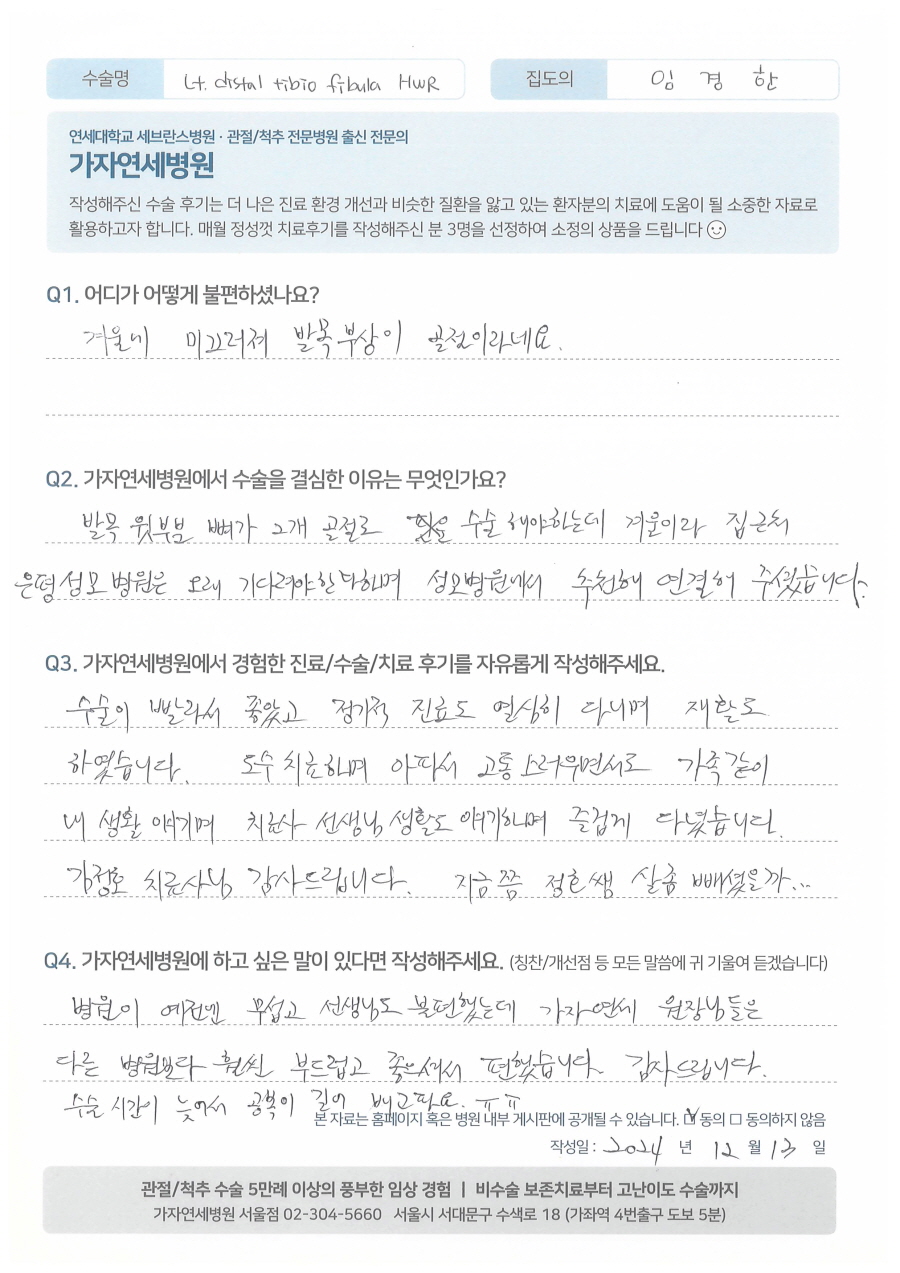 수술명 Lt. distal tibio fibula HWR 집도의 임 경 한
연세대학교 세브란스병원 · 관절/척추 전문병원 출신 전문의
가자연세병원
작성해주신 수술 후기는 더 나은 진료 환경 개선과 비슷한 질환을 앓고 있는 환자분의 치료에 도움이 될 소중한 자료로
활용하고자 합니다. 매월 정성껏 치료후기를 작성해주신 분 3명을 선정하여 소정의 상품을 드립니다
Q1. 어디가 어떻게 불편하셨나요?
겨울에 미끄러져 발목 부상이 골절이라네요.
Q2. 가자연세병원에서 수술을 결심한 이유는 무엇인가요?
발목 윗부분 뼈가 2개 골절로 수술 해야하는데 겨울이라 집근처
은평성모병원은 오래 기다려야 한다하며 성모병원에서 추천해 연결해 주셨습니다.
Q3. 가자연세병원에서 경험한 진료/수술/치료 후기를 자유롭게 작성해주세요.
수술이 빨라서 좋았고 정기적 진료도 열심히 다니며 재활도
하였습니다. 도수치료하며 아파서 고통스러우면서도 가족같이
내 생활 얘기며 치료사 선생님 생활도 얘기하며 즐겁게 다녔습니다.
강정호 치료사님 감사드립니다. 지금쯤 정호쌤 살좀 빼셨을까...
Q4. 가자연세병원에 하고 싶은 말이 있다면 작성해주세요. (칭찬/개선점 등 모든 말씀에 귀 기울여 듣겠습니다)
병원이 예전엔 무섭고 선생님도 불편했는데 가자연세 원장님들은
다른 병원보다 훨씬 부드럽고 좋으셔서 편했습니다. 감사드립니다.
수술 시간이 늦어서 공복이 길어 배고파요. ㅠㅠ
본 자료는 홈페이지 혹은 병원 내부 게시판에 공개될 수 있습니다. ☑ 동의 ☐ 동의하지 않음
작성일 : 2024 년 12 월 13 일
관절/척추 수술 5만례 이상의 풍부한 임상 경험 | 비수술 보존치료부터 고난이도 수술까지
가자연세병원 서울점 02-304-5660 서울시 서대문구 수색로 18 (가좌역 4번출구 도보 5분)